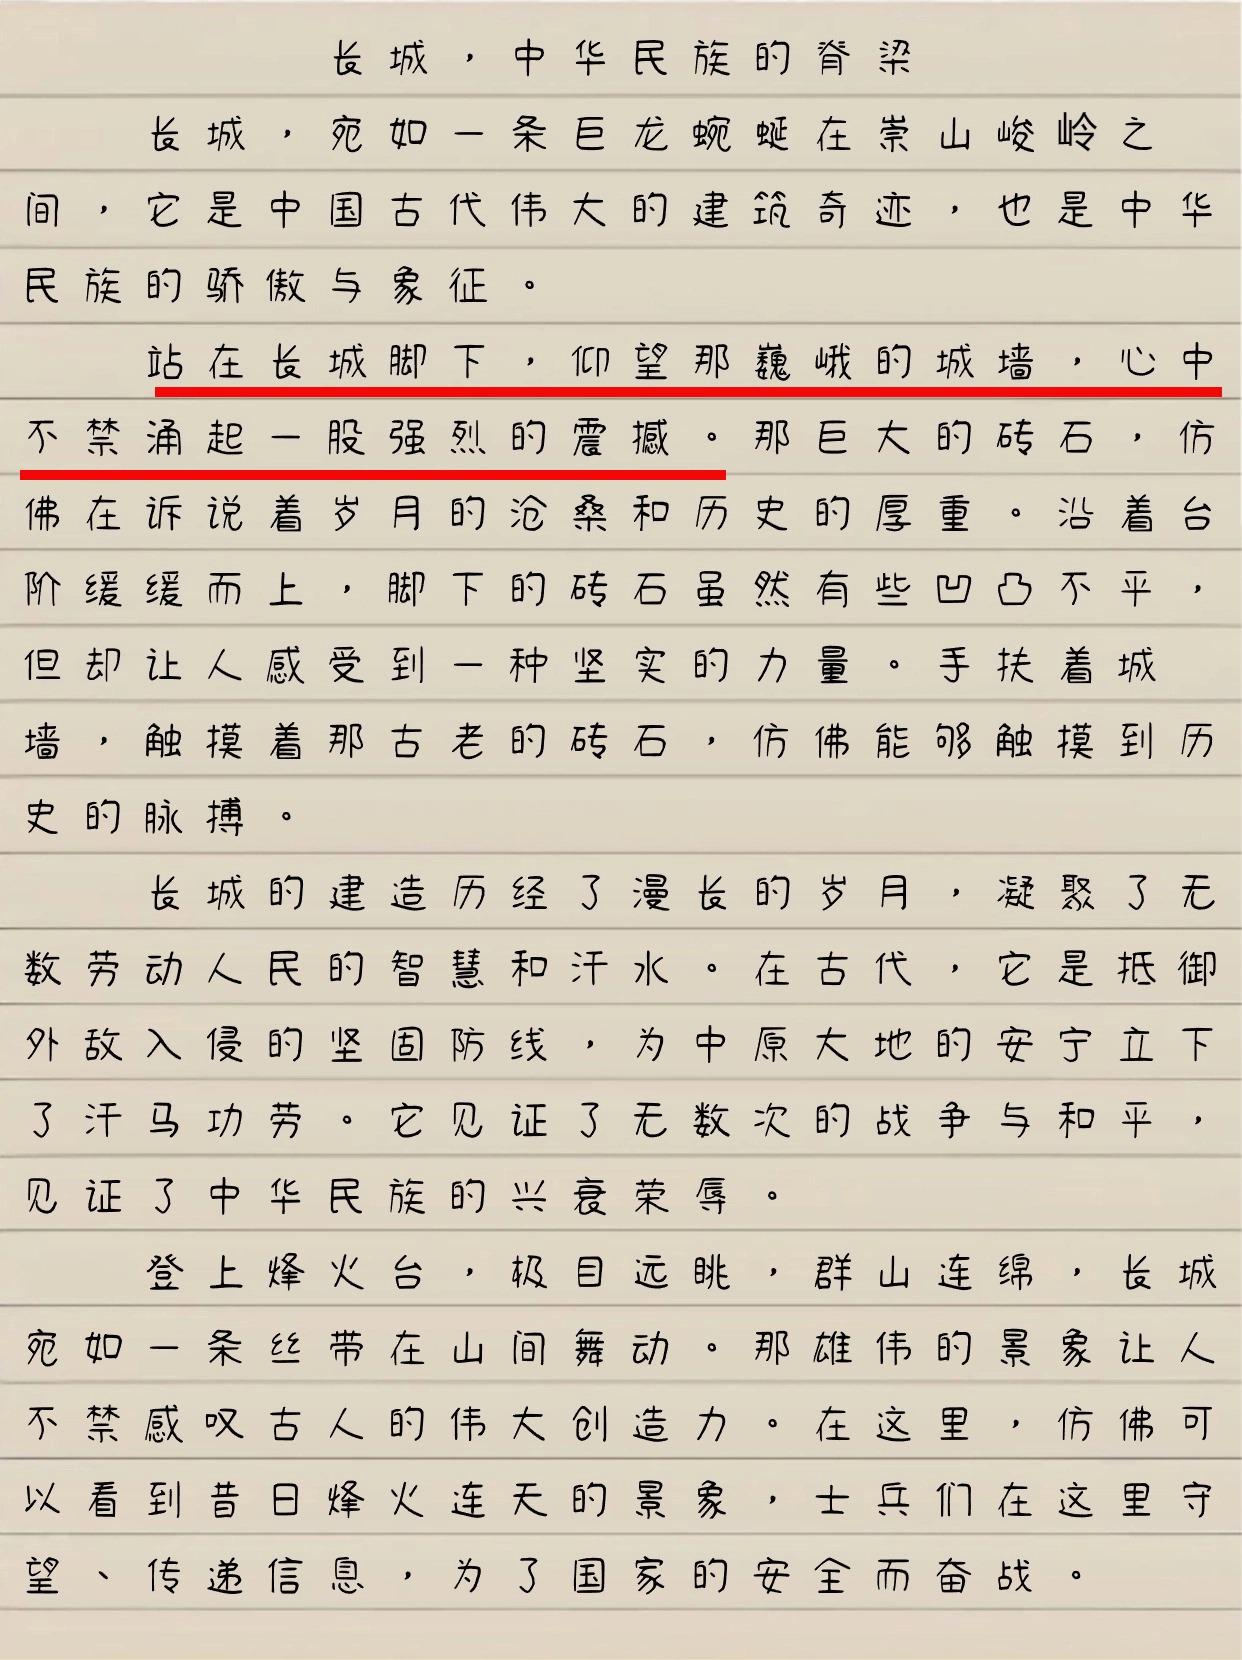 长城，中华民族的脊梁
长城，宛如一条巨龙蜿蜒在崇山峻岭之
间，它是中国古代伟大的建筑奇迹，也是中华
民族的骄傲与象征。
站在长城脚下，仰望那巍峨的城墙，心中
不禁涌起一股强烈的震撼。那巨大的砖石，仿
佛在诉说着岁月的沧桑和历史的厚重。沿着台
阶缓缓而上，脚下的砖石虽然有些凹凸不平，
但却让人感受到一种坚实的力量。手扶着城
墙，触摸着那古老的砖石，仿佛能够触摸到历
史的脉搏。
长城的建造历经了漫长的岁月，凝聚了无
数劳动人民的智慧和汗水。在古代，它是抵御
外敌入侵的坚固防线，为中原大地的安宁立下
了汗马功劳。它见证了无数次的战争与和平，
见证了中华民族的兴衰荣辱。
登上烽火台，极目远眺，群山连绵，长城
宛如一条丝带在山间舞动。那雄伟的景象让人
不禁感叹古人的伟大创造力。在这里，仿佛可
以看到昔日烽火连天的景象，士兵们在这里守
望、传递信息，为了国家的安全而奋战。